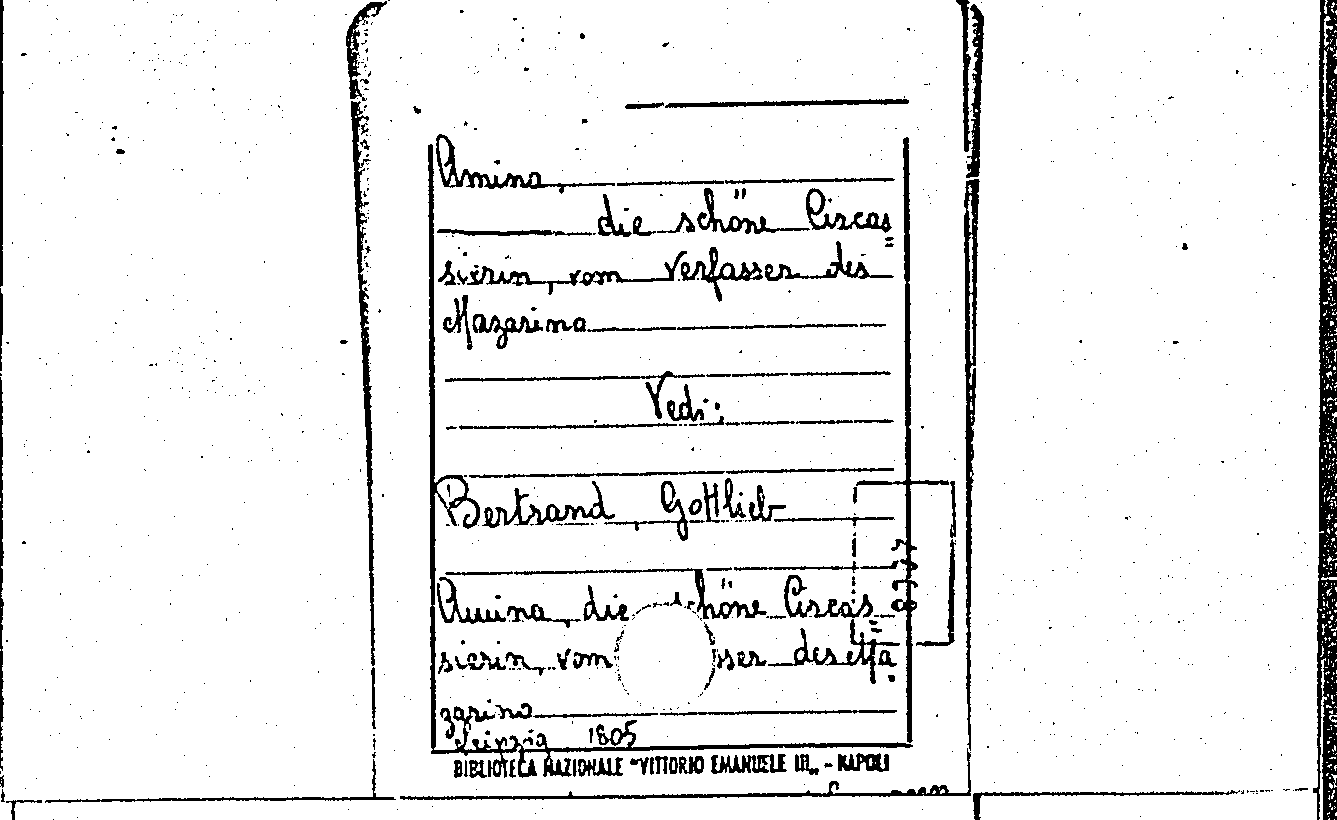 Amina,
die schöne Circas=
sierin, vom Verfasser des
Mazarino
Vedi:
Bertrand, Gottlieb
Amina, die schöne Circas=
sierin, vom sser des Ma
zarino
Leipzig 1805
BIBLIOTECA NAZIONALE "VITTORIO EMANUELE III„ - NAPOLI